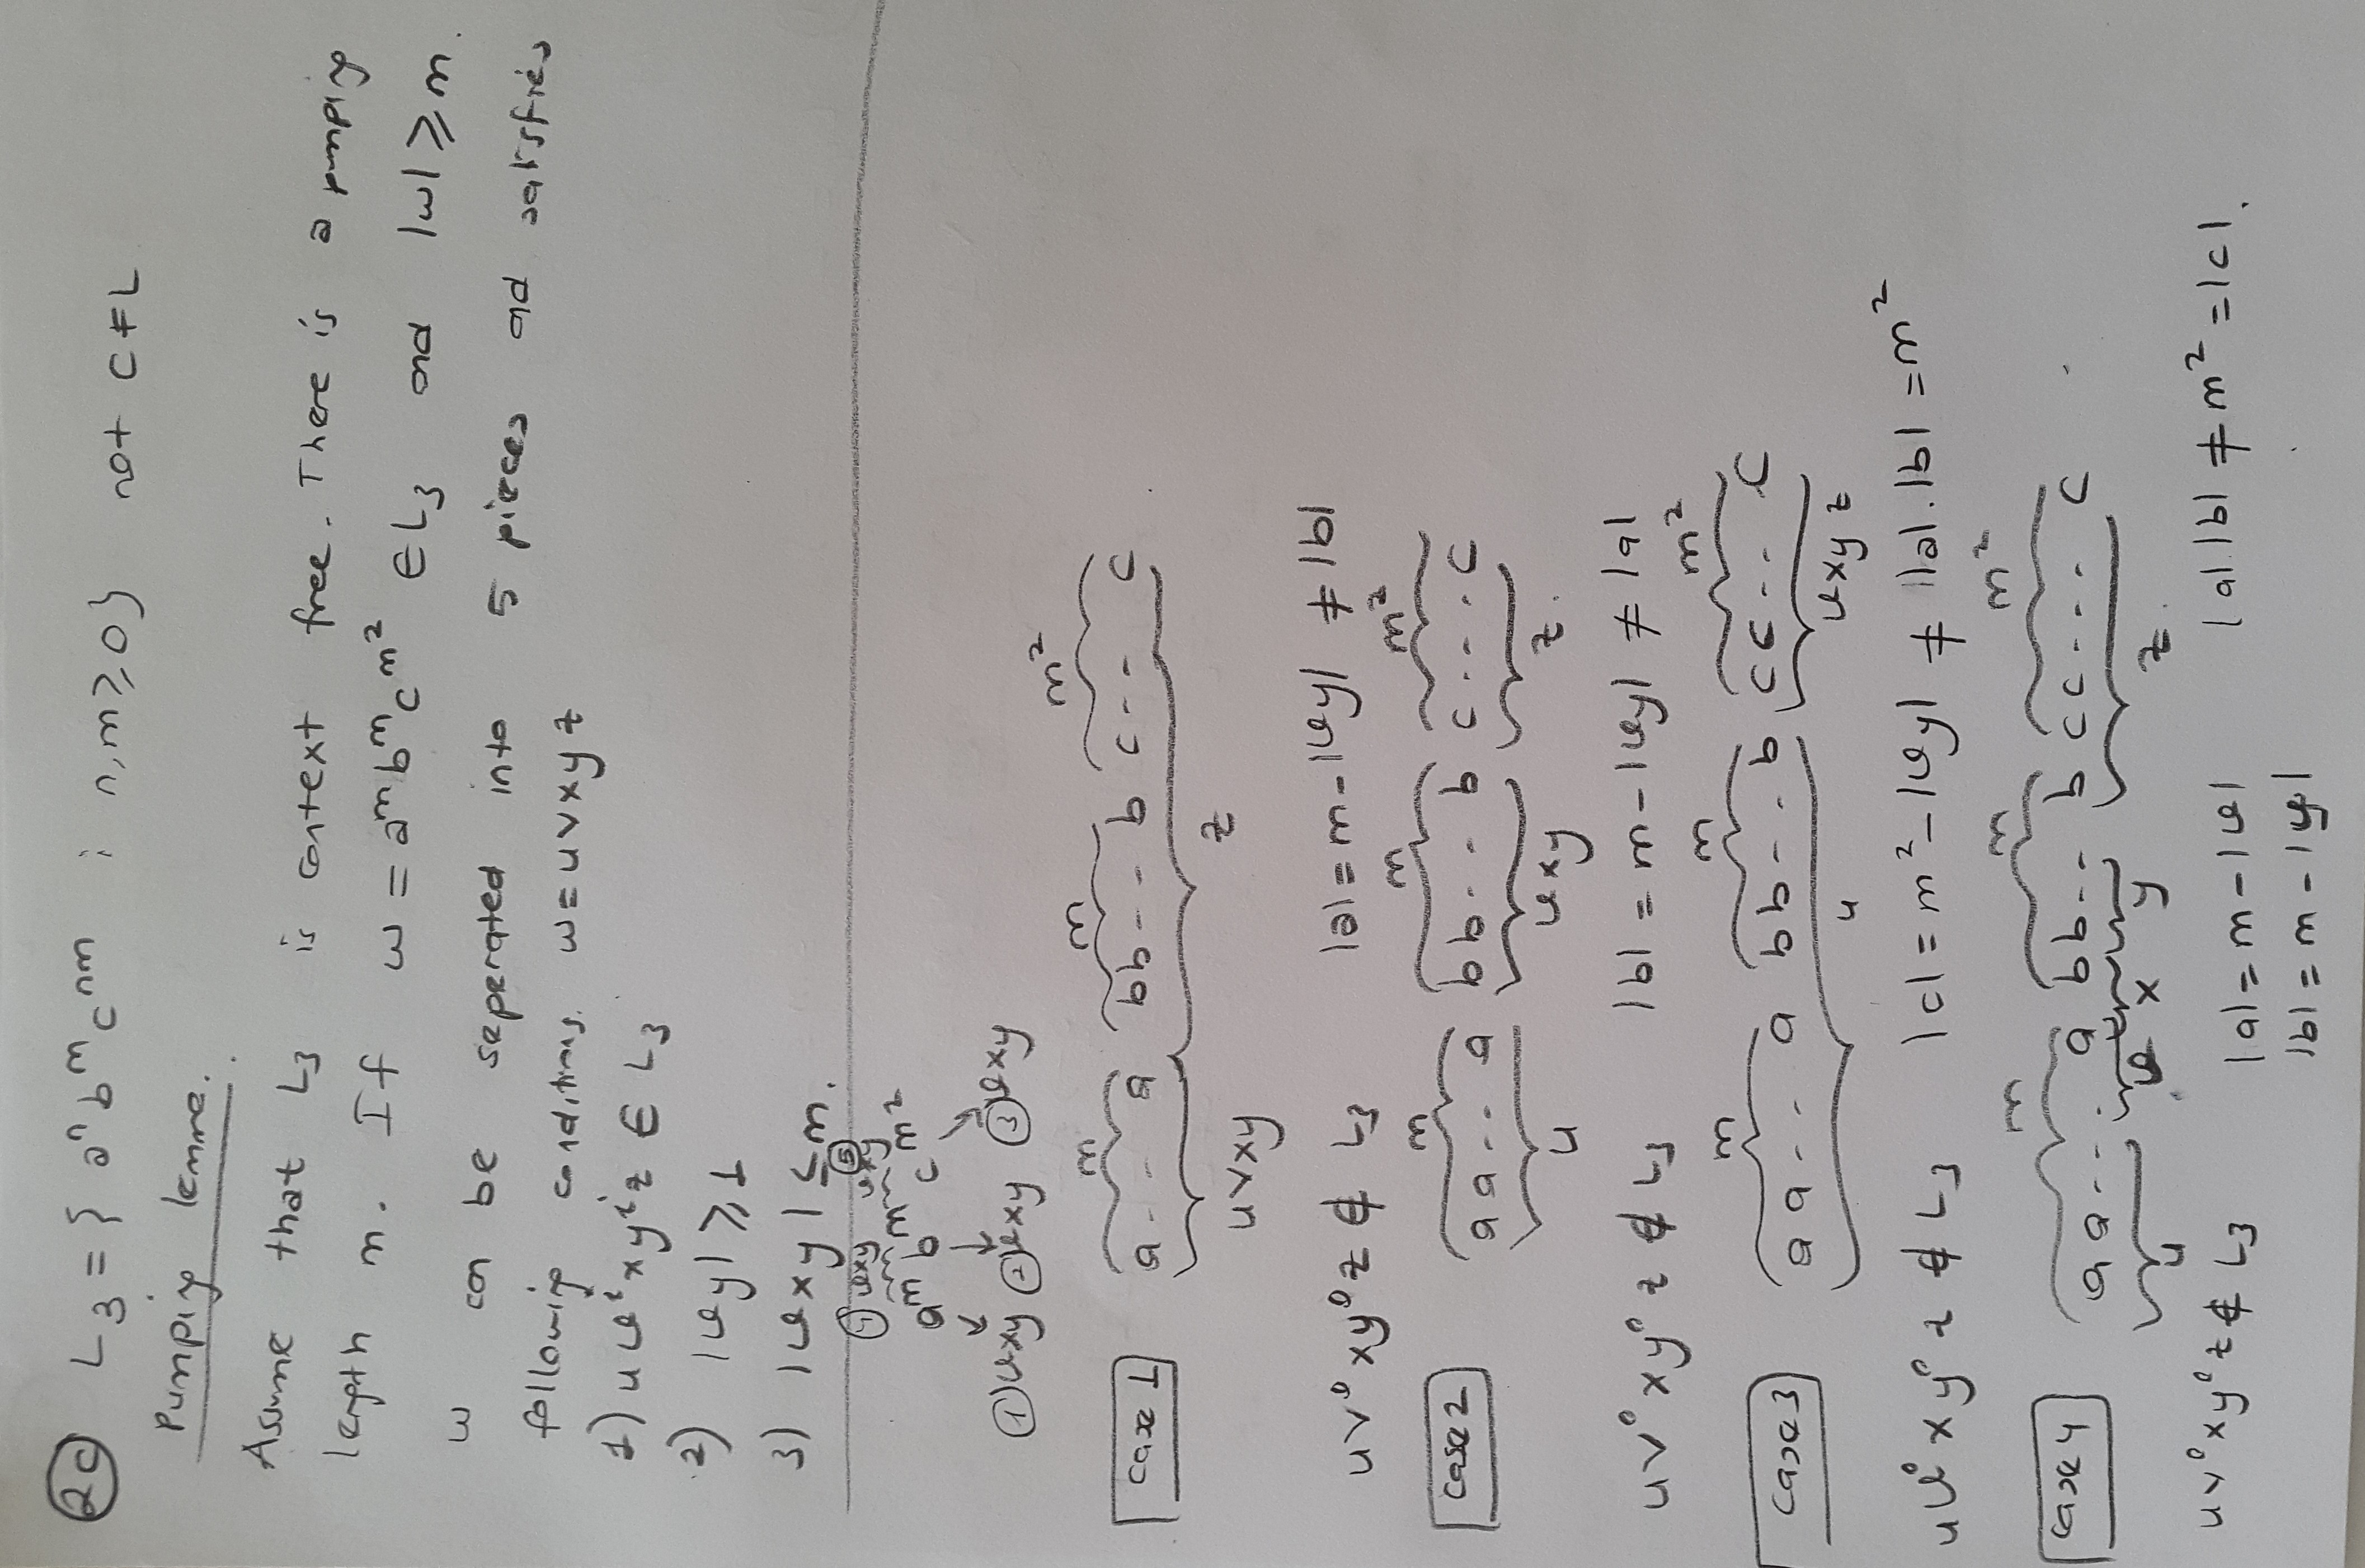 2c L₃ = { aⁿ bᵐ cⁿᵐ ; n,m ≥ 0 } not CFL
Pumping lemma.
Assume that L₃ is context free. There is a pumping
length m. If w = aᵐ bᵐ c^m² ∈ L₃ and |w| ≥ m.
w can be seperated into 5 pieces and satisfies
following conditions. w = uvxyz
1) uvⁱxyⁱz ∈ L₃
2) |vy| ≥ 1
3) |vxy| ≤ m.
④ vxy ⑤ vxy
aᵐ bᵐ c^m²
① vxy ② vxy ③ vxy
m m m²
case 1 a - - a bb - - b c - - c
uvxy z
uv⁰xy⁰z ∉ L₃ |a| = m - |vy| ≠ |b|
m m m²
case 2 aa .. a bb . - b c - . . c
u vxy z.
uv⁰xy⁰z ∉ L₃ |b| = m - |vy| ≠ |a|
m m m²
case 3 aa . - - a bb - . b cc - . . c
u vxy z
uv⁰xy⁰z ∉ L₃ |c| = m² - |vy| ≠ |a|.|b| = m²
m m m²
case 4 aa - - - . a bb - - b cc - - - c
u v x y z.
uv⁰xy⁰z ∉ L₃ |a| = m - |v| |a|.|b| ≠ m² = |c|.
|b| = m - |y|